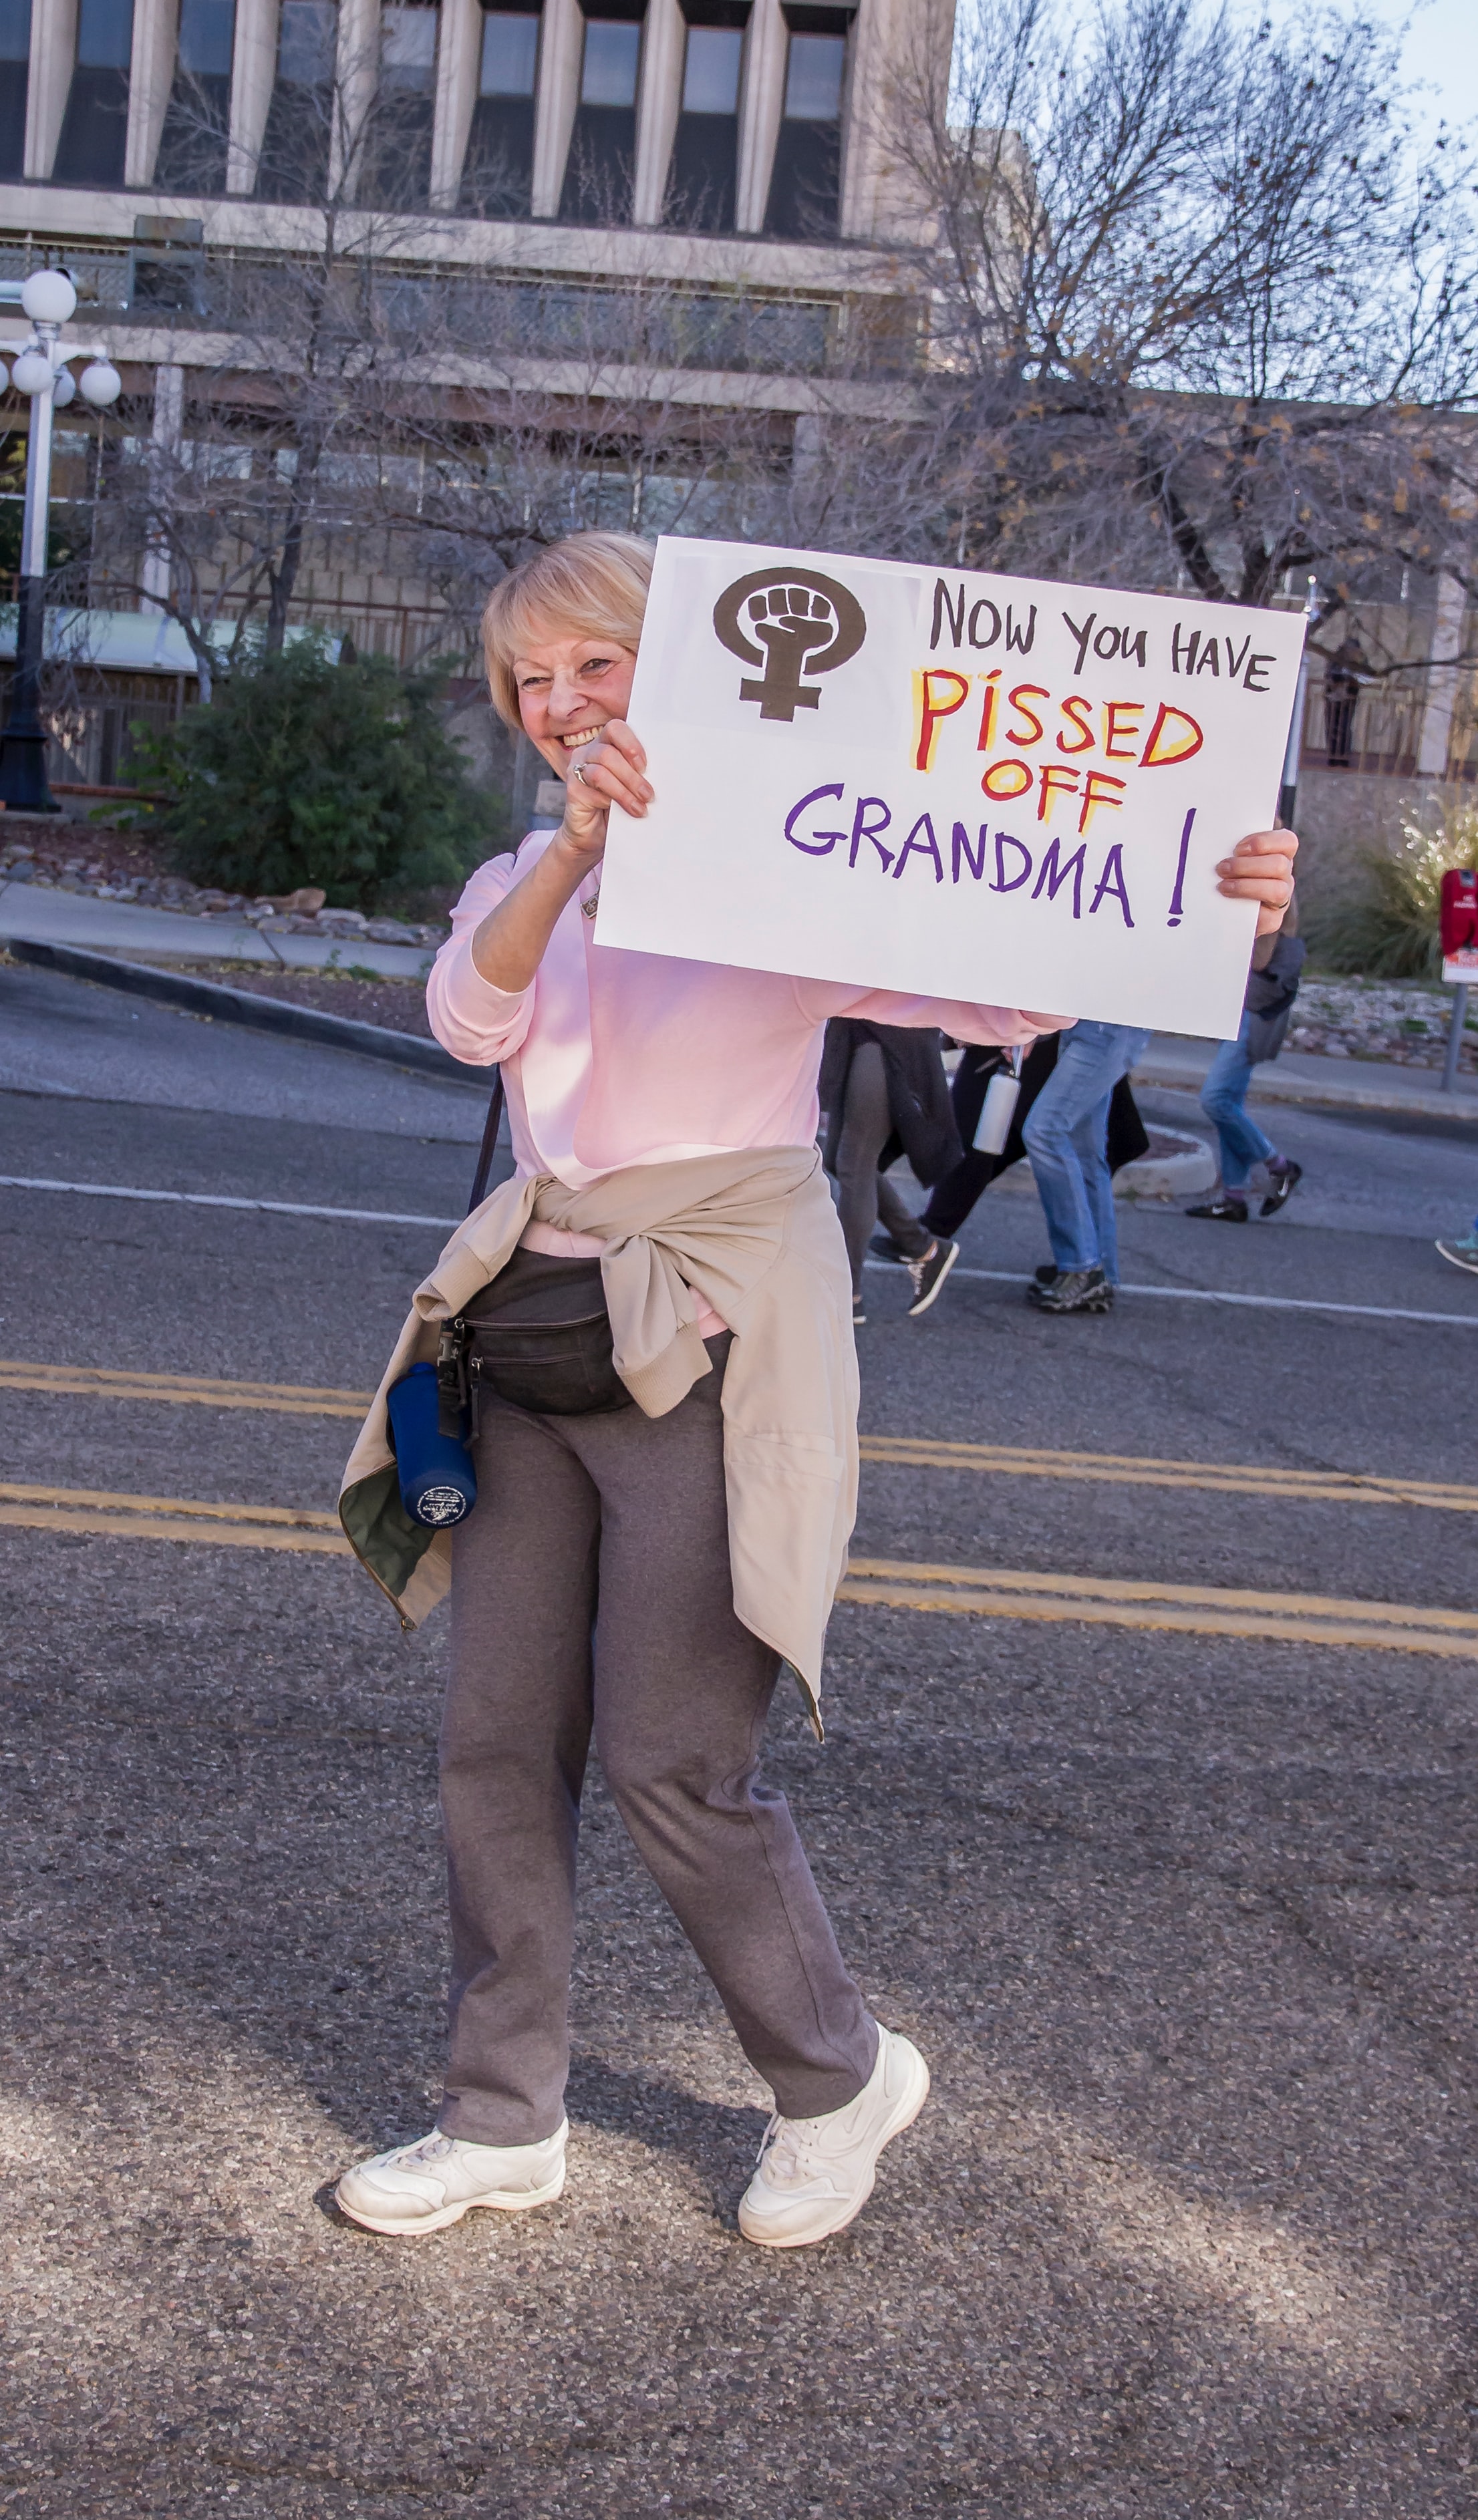 NOW YOU HAVE
PiSSED
OFF
GRANDMA!